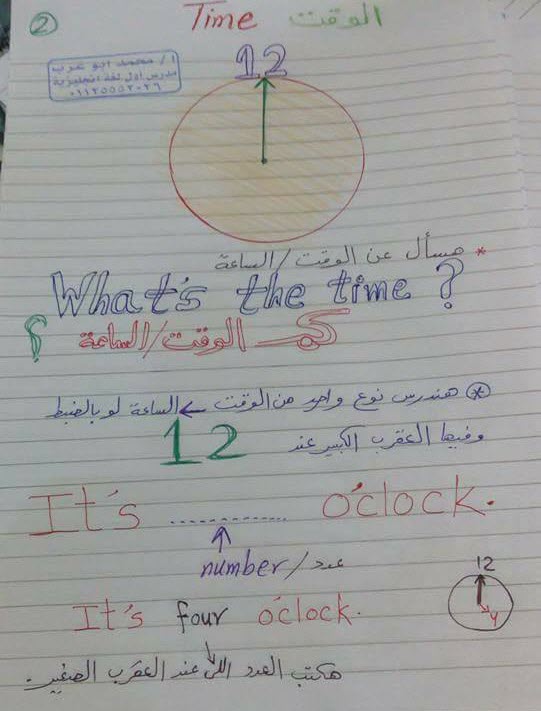 ② Time الوقت
أ / محمد ابو عرب
مدرس أول لغة انجليزية
٠١١٢٥٥٥٢٠٢٦
12
* هسأل عن الوقت / الساعة
What's the time ?
كم الوقت / الساعة ؟
* هندرس نوع واحد من الوقت ← الساعة لو بالضبط
وفيها العقرب الكبير عند 12
It's ............... o'clock.
number / عدد
12
It's four o'clock.
4
هكتب العدد اللى عند العقرب الصغير.